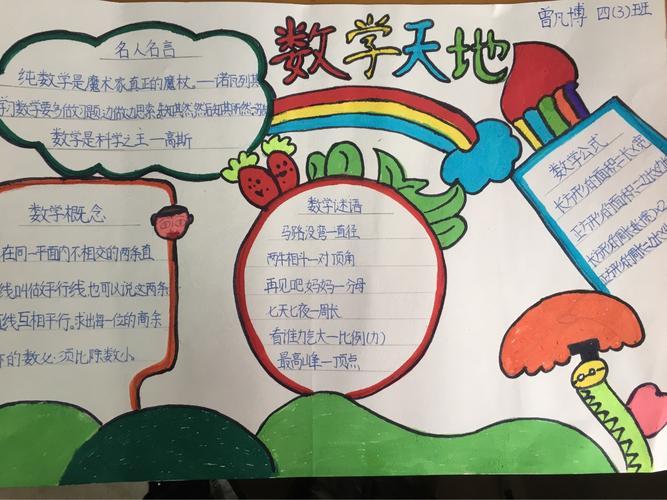 曾凡博 四(3)班
数学天地
名人名言
纯数学是魔术家真正的魔杖。——诺瓦列其
学习数学要多做习题,边做边思索。先知其然,然后知其所然
数学是科学之王—高斯
数学概念
在同一平面内不相交的两条直
线叫做平行线,也可以说这两条
线互相平行。求出每一位的商余
的数必须比除数小
数学谜语
马路没弯—直径
两牛相斗—对顶角
再见吧,妈妈—分母
七天七夜—周长
看谁力气大—比例(力)
最高山峰—顶点
数学公式
长方形的面积=长×宽
正方形的面积=边长×边
长方形的周长=(长+宽)×2
正方形的周长=边长×4